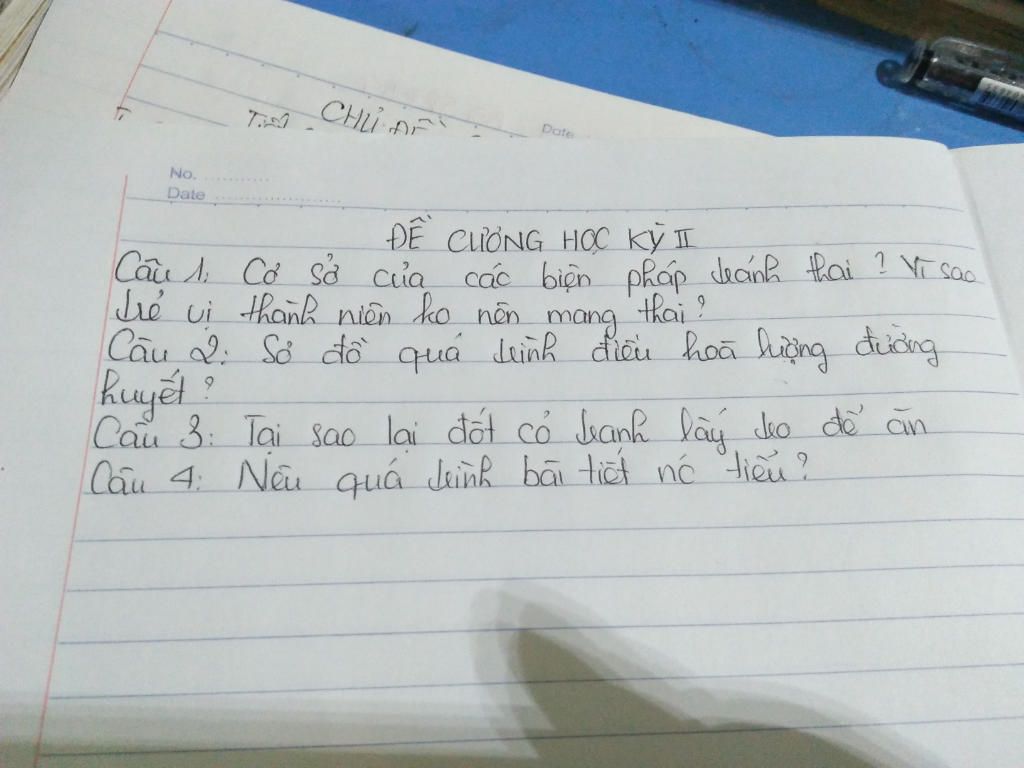 CHỦ ĐỀ
Date
No.
Date
ĐỀ CƯƠNG HỌC KỲ II
Câu 1: Cơ sở của các biện pháp tránh thai? Vì sao
trẻ vị thành niên ko nên mang thai?
Câu 2: Sơ đồ quá trình điều hoà lượng đường
huyết?
Câu 3: Tại sao lại đốt cỏ tranh lấy tro để ăn
Câu 4: Nêu quá trình bài tiết nc tiểu?